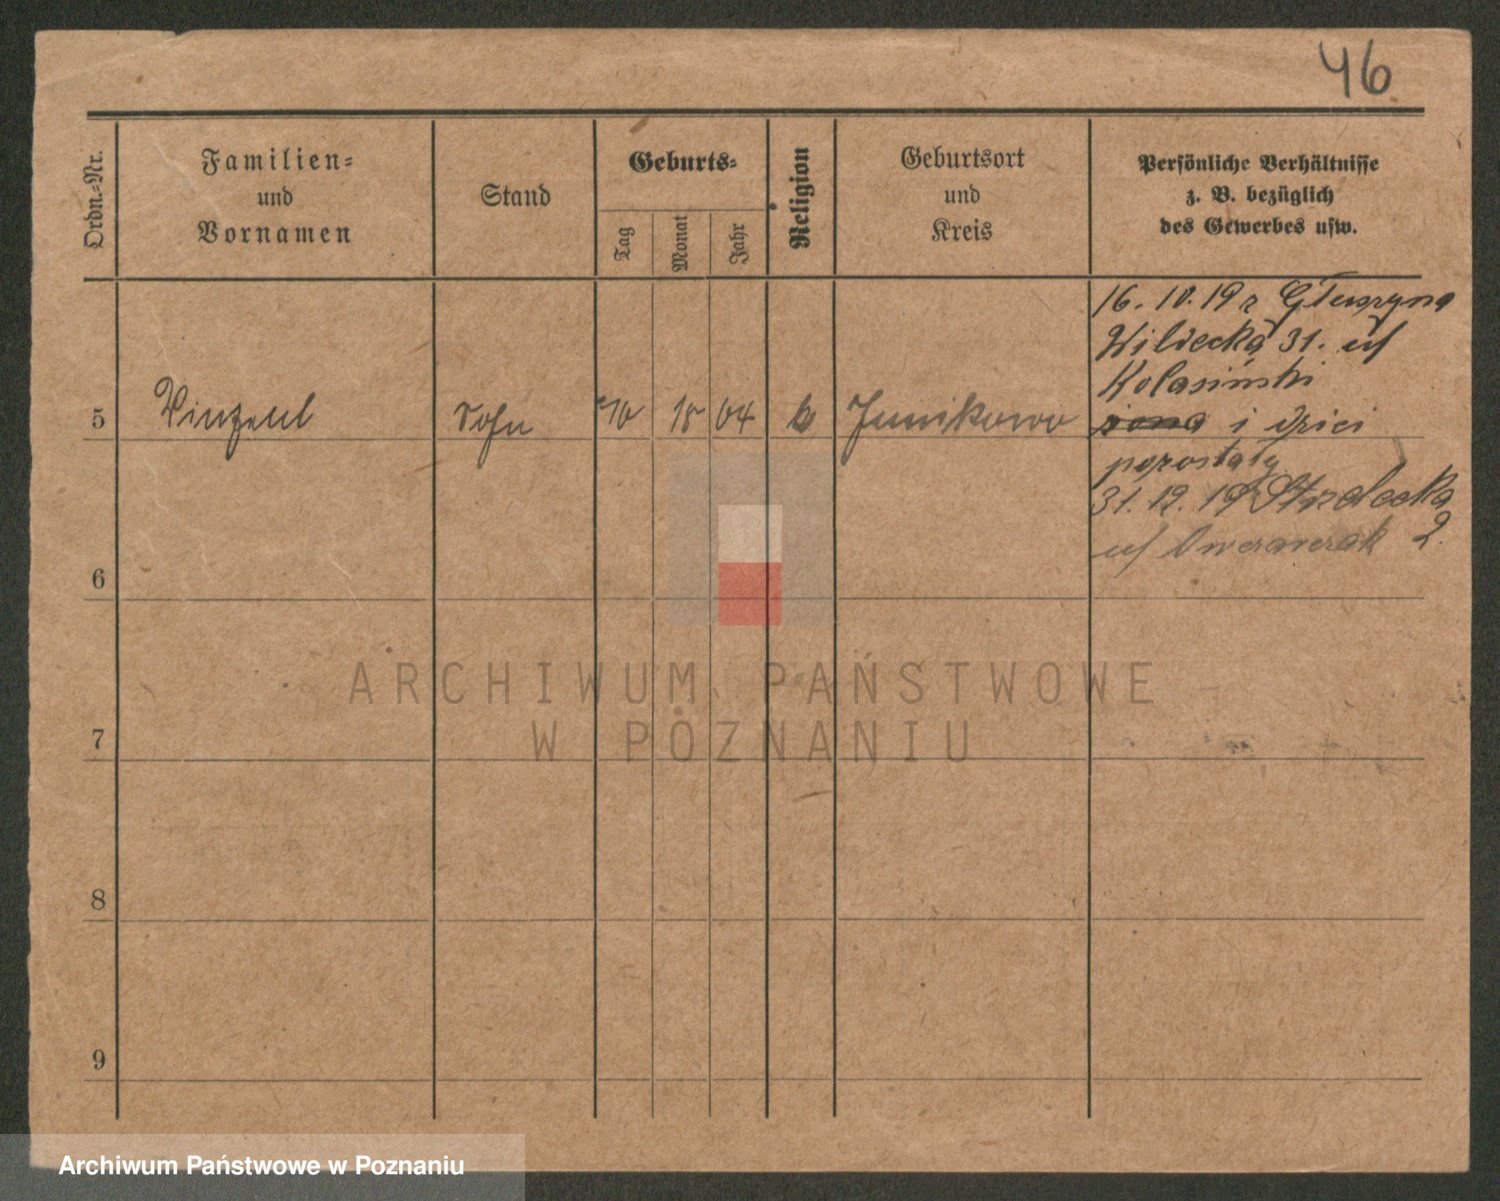 46
Ordn.-Nr.
Familien-
und
Vornamen
Stand
Geburts-
Tag
Monat
Jahr
Religion
Geburtsort
und
Kreis
Persönliche Verhältnisse
z. B. bezüglich
des Gewerbes usw.
5
Vinzent
Sohn
04
k
Junikowo
16. 10. 19 z Głuszyna
Wildecka 31. u/
Kolasiński
żona i dzieci
pozostały
31. 12. 19 Strzelecka
u/ 2.
6
7
8
9
ARCHIWUM PAŃSTWOWE
W POZNANIU
Archiwum Państwowe w Poznaniu